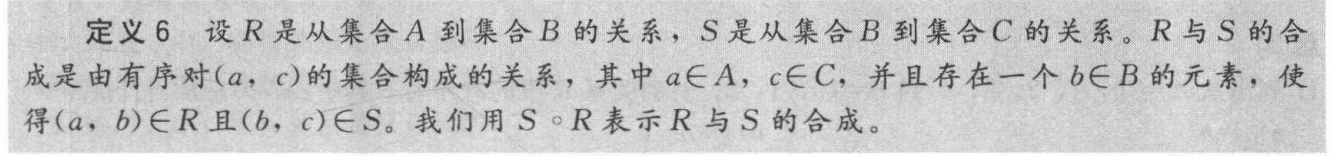 定义6 设R是从集合A到集合B的关系，S是从集合B到集合C的关系。R与S的合
成是由有序对(a，c)的集合构成的关系，其中a∈A，c∈C，并且存在一个b∈B的元素，使
得(a，b)∈R且(b，c)∈S。我们用S∘R表示R与S的合成。